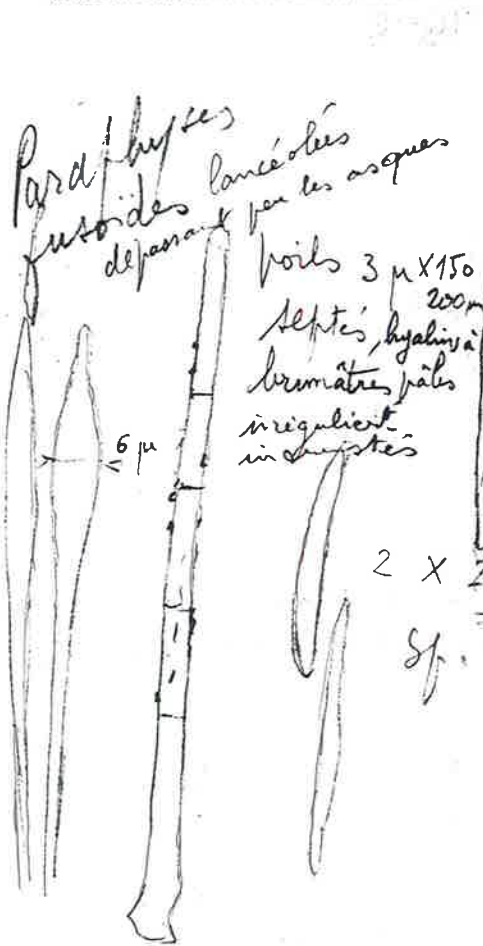 Paraphyses
fusoïdes lancéolées
dépassant peu les asques
poils 3 µ X 150
200 µ
septés, hyalins à
brunâtres pâles
irrégulièrt
incrustés
6 µ
2 X 2
Sp.